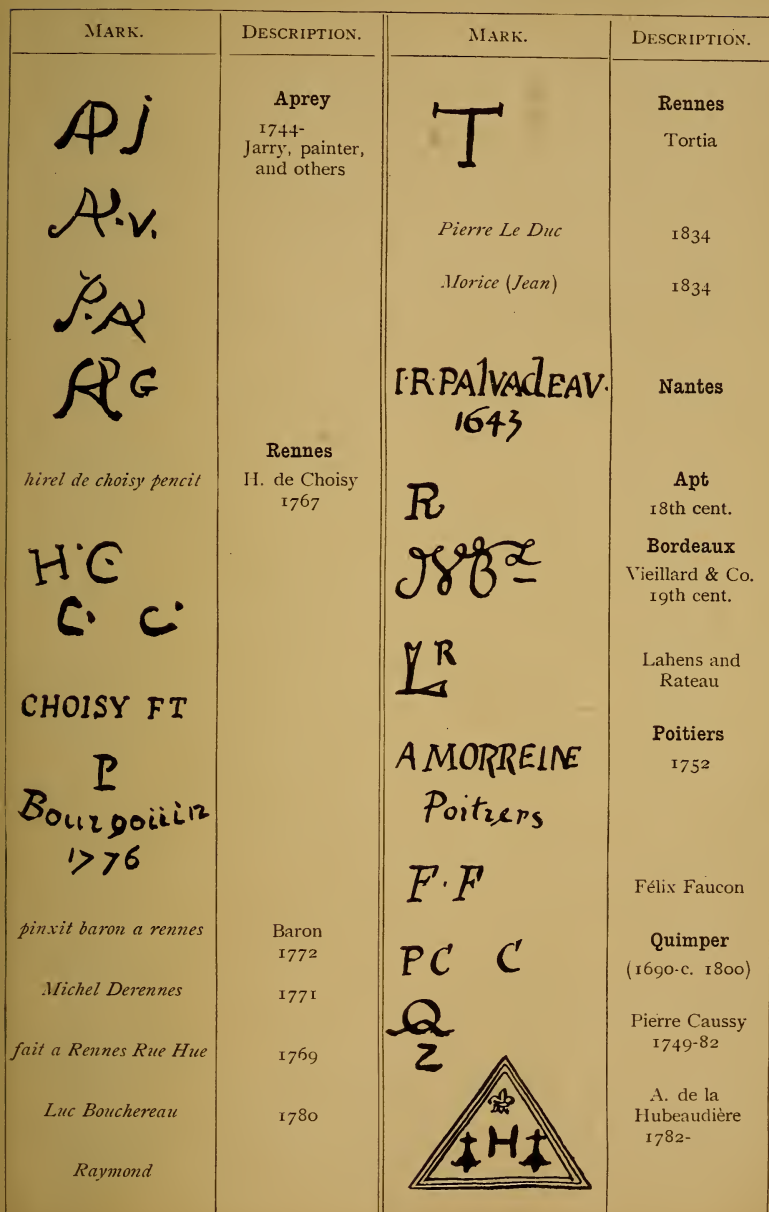 MARK. DESCRIPTION.
AP J Aprey
1744-
Jarry, painter,
and others
AP.v.
P.A
AP G
Rennes
hirel de choisy pencit H. de Choisy
1767
H·C
C· C·
CHOISY FT
P
Bourgoüin
1776
pinxit baron a rennes Baron
1772
Michel Derennes 1771
fait a Rennes Rue Hue 1769
Luc Bouchereau 1780
Raymond
MARK. DESCRIPTION.
T Rennes
Tortia
Pierre Le Duc 1834
Morice (Jean) 1834
I·R·PAlVAdEAV· Nantes
1643
R Apt
18th cent.
Bordeaux
Vieillard & Co.
19th cent.
L R Lahens and
Rateau
Poitiers
A MORREINE 1752
Poitiers
F·F Félix Faucon
Quimper
PC C (1690-c. 1800)
Q
Z
Pierre Caussy
1749-82
H A. de la
Hubeaudière
1782-